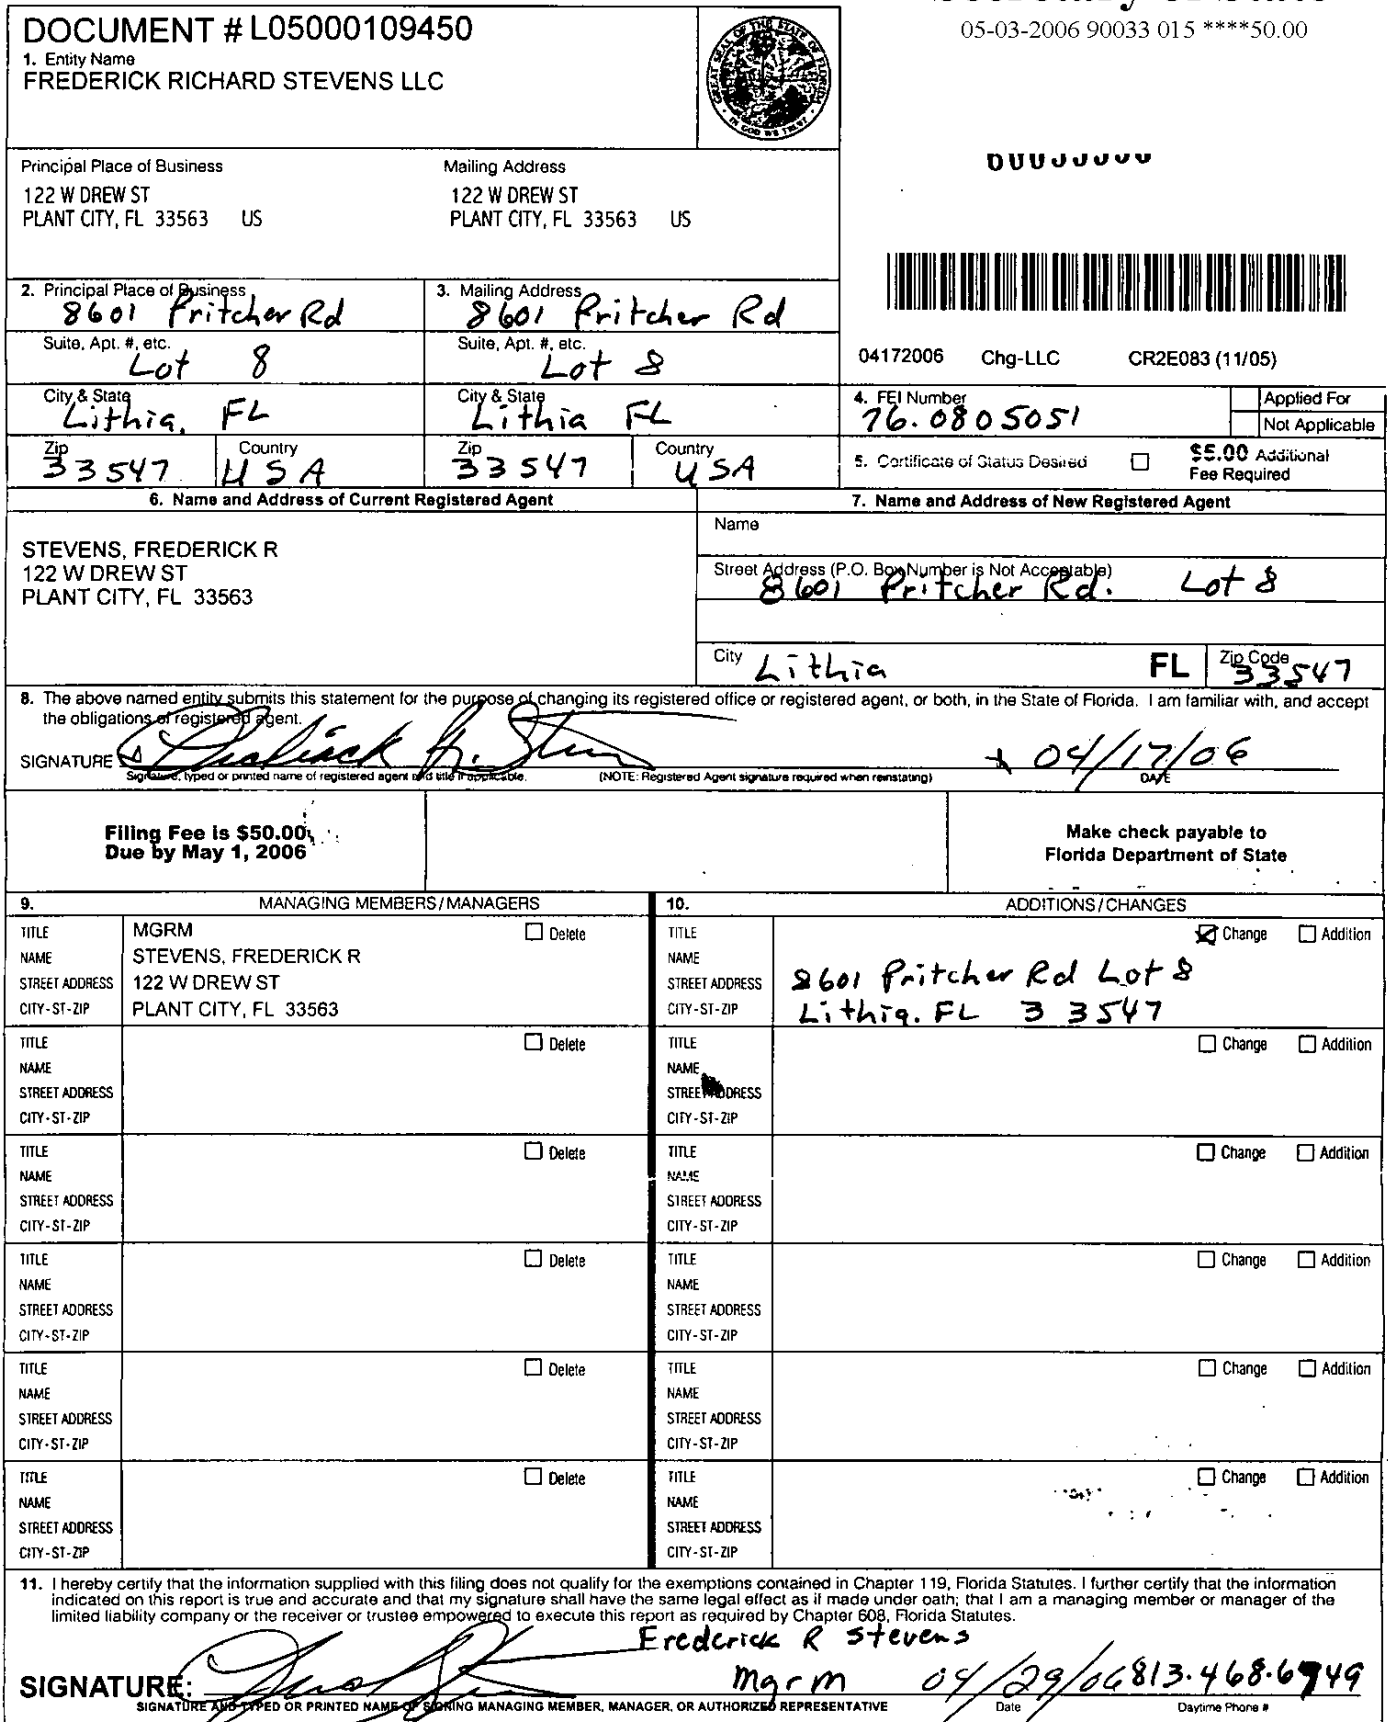 05-03-2006 90033 015 ****50.00
DOCUMENT # L05000109450
1. Entity Name
FREDERICK RICHARD STEVENS LLC
GREAT SEAL OF THE STATE OF FLORIDA
IN GOD WE TRUST
Principal Place of Business
122 W DREW ST
PLANT CITY, FL 33563 US
Mailing Address
122 W DREW ST
PLANT CITY, FL 33563 US
2. Principal Place of Business
8601 Pritcher Rd
3. Mailing Address
8601 Pritcher Rd
Suite, Apt. #, etc.
Lot 8
Suite, Apt. #, etc.
Lot 8
04172006 Chg-LLC CR2E083 (11/05)
City & State
Lithia, FL
City & State
Lithia FL
4. FEI Number
76.0805051
Applied For
Not Applicable
Zip
33547
Country
USA
Zip
33547
Country
USA
5. Certificate of Status Desired
$5.00 Additional
Fee Required
6. Name and Address of Current Registered Agent
7. Name and Address of New Registered Agent
STEVENS, FREDERICK R
122 W DREW ST
PLANT CITY, FL 33563
Name
Street Address (P.O. Box Number is Not Acceptable)
8601 Pritcher Rd. Lot 8
City Lithia FL Zip Code 33547
8. The above named entity submits this statement for the purpose of changing its registered office or registered agent, or both, in the State of Florida. I am familiar with, and accept
the obligations of registered agent.
SIGNATURE Frederick R. Stevens 04/17/06
Signature, typed or printed name of registered agent and title if applicable. (NOTE: Registered Agent signature required when reinstating) DATE
Filing Fee is $50.00
Due by May 1, 2006
Make check payable to
Florida Department of State
9. MANAGING MEMBERS/MANAGERS
10. ADDITIONS/CHANGES
TITLE MGRM Delete
NAME STEVENS, FREDERICK R
STREET ADDRESS 122 W DREW ST
CITY-ST-ZIP PLANT CITY, FL 33563
TITLE Change Addition
NAME
STREET ADDRESS 8601 Pritcher Rd Lot 8
CITY-ST-ZIP Lithia. FL 33547
TITLE Delete
NAME
STREET ADDRESS
CITY-ST-ZIP
TITLE Change Addition
NAME
STREET ADDRESS
CITY-ST-ZIP
TITLE Delete
NAME
STREET ADDRESS
CITY-ST-ZIP
TITLE Change Addition
NAME
STREET ADDRESS
CITY-ST-ZIP
TITLE Delete
NAME
STREET ADDRESS
CITY-ST-ZIP
TITLE Change Addition
NAME
STREET ADDRESS
CITY-ST-ZIP
TITLE Delete
NAME
STREET ADDRESS
CITY-ST-ZIP
TITLE Change Addition
NAME
STREET ADDRESS
CITY-ST-ZIP
TITLE Delete
NAME
STREET ADDRESS
CITY-ST-ZIP
TITLE Change Addition
NAME
STREET ADDRESS
CITY-ST-ZIP
11. I hereby certify that the information supplied with this filing does not qualify for the exemptions contained in Chapter 119, Florida Statutes. I further certify that the information
indicated on this report is true and accurate and that my signature shall have the same legal effect as if made under oath; that I am a managing member or manager of the
limited liability company or the receiver or trustee empowered to execute this report as required by Chapter 608, Florida Statutes.
Frederick R Stevens
SIGNATURE: Mgrm 04/29/06 813.468.6749
SIGNATURE AND TYPED OR PRINTED NAME OF SIGNING MANAGING MEMBER, MANAGER, OR AUTHORIZED REPRESENTATIVE Date Daytime Phone #